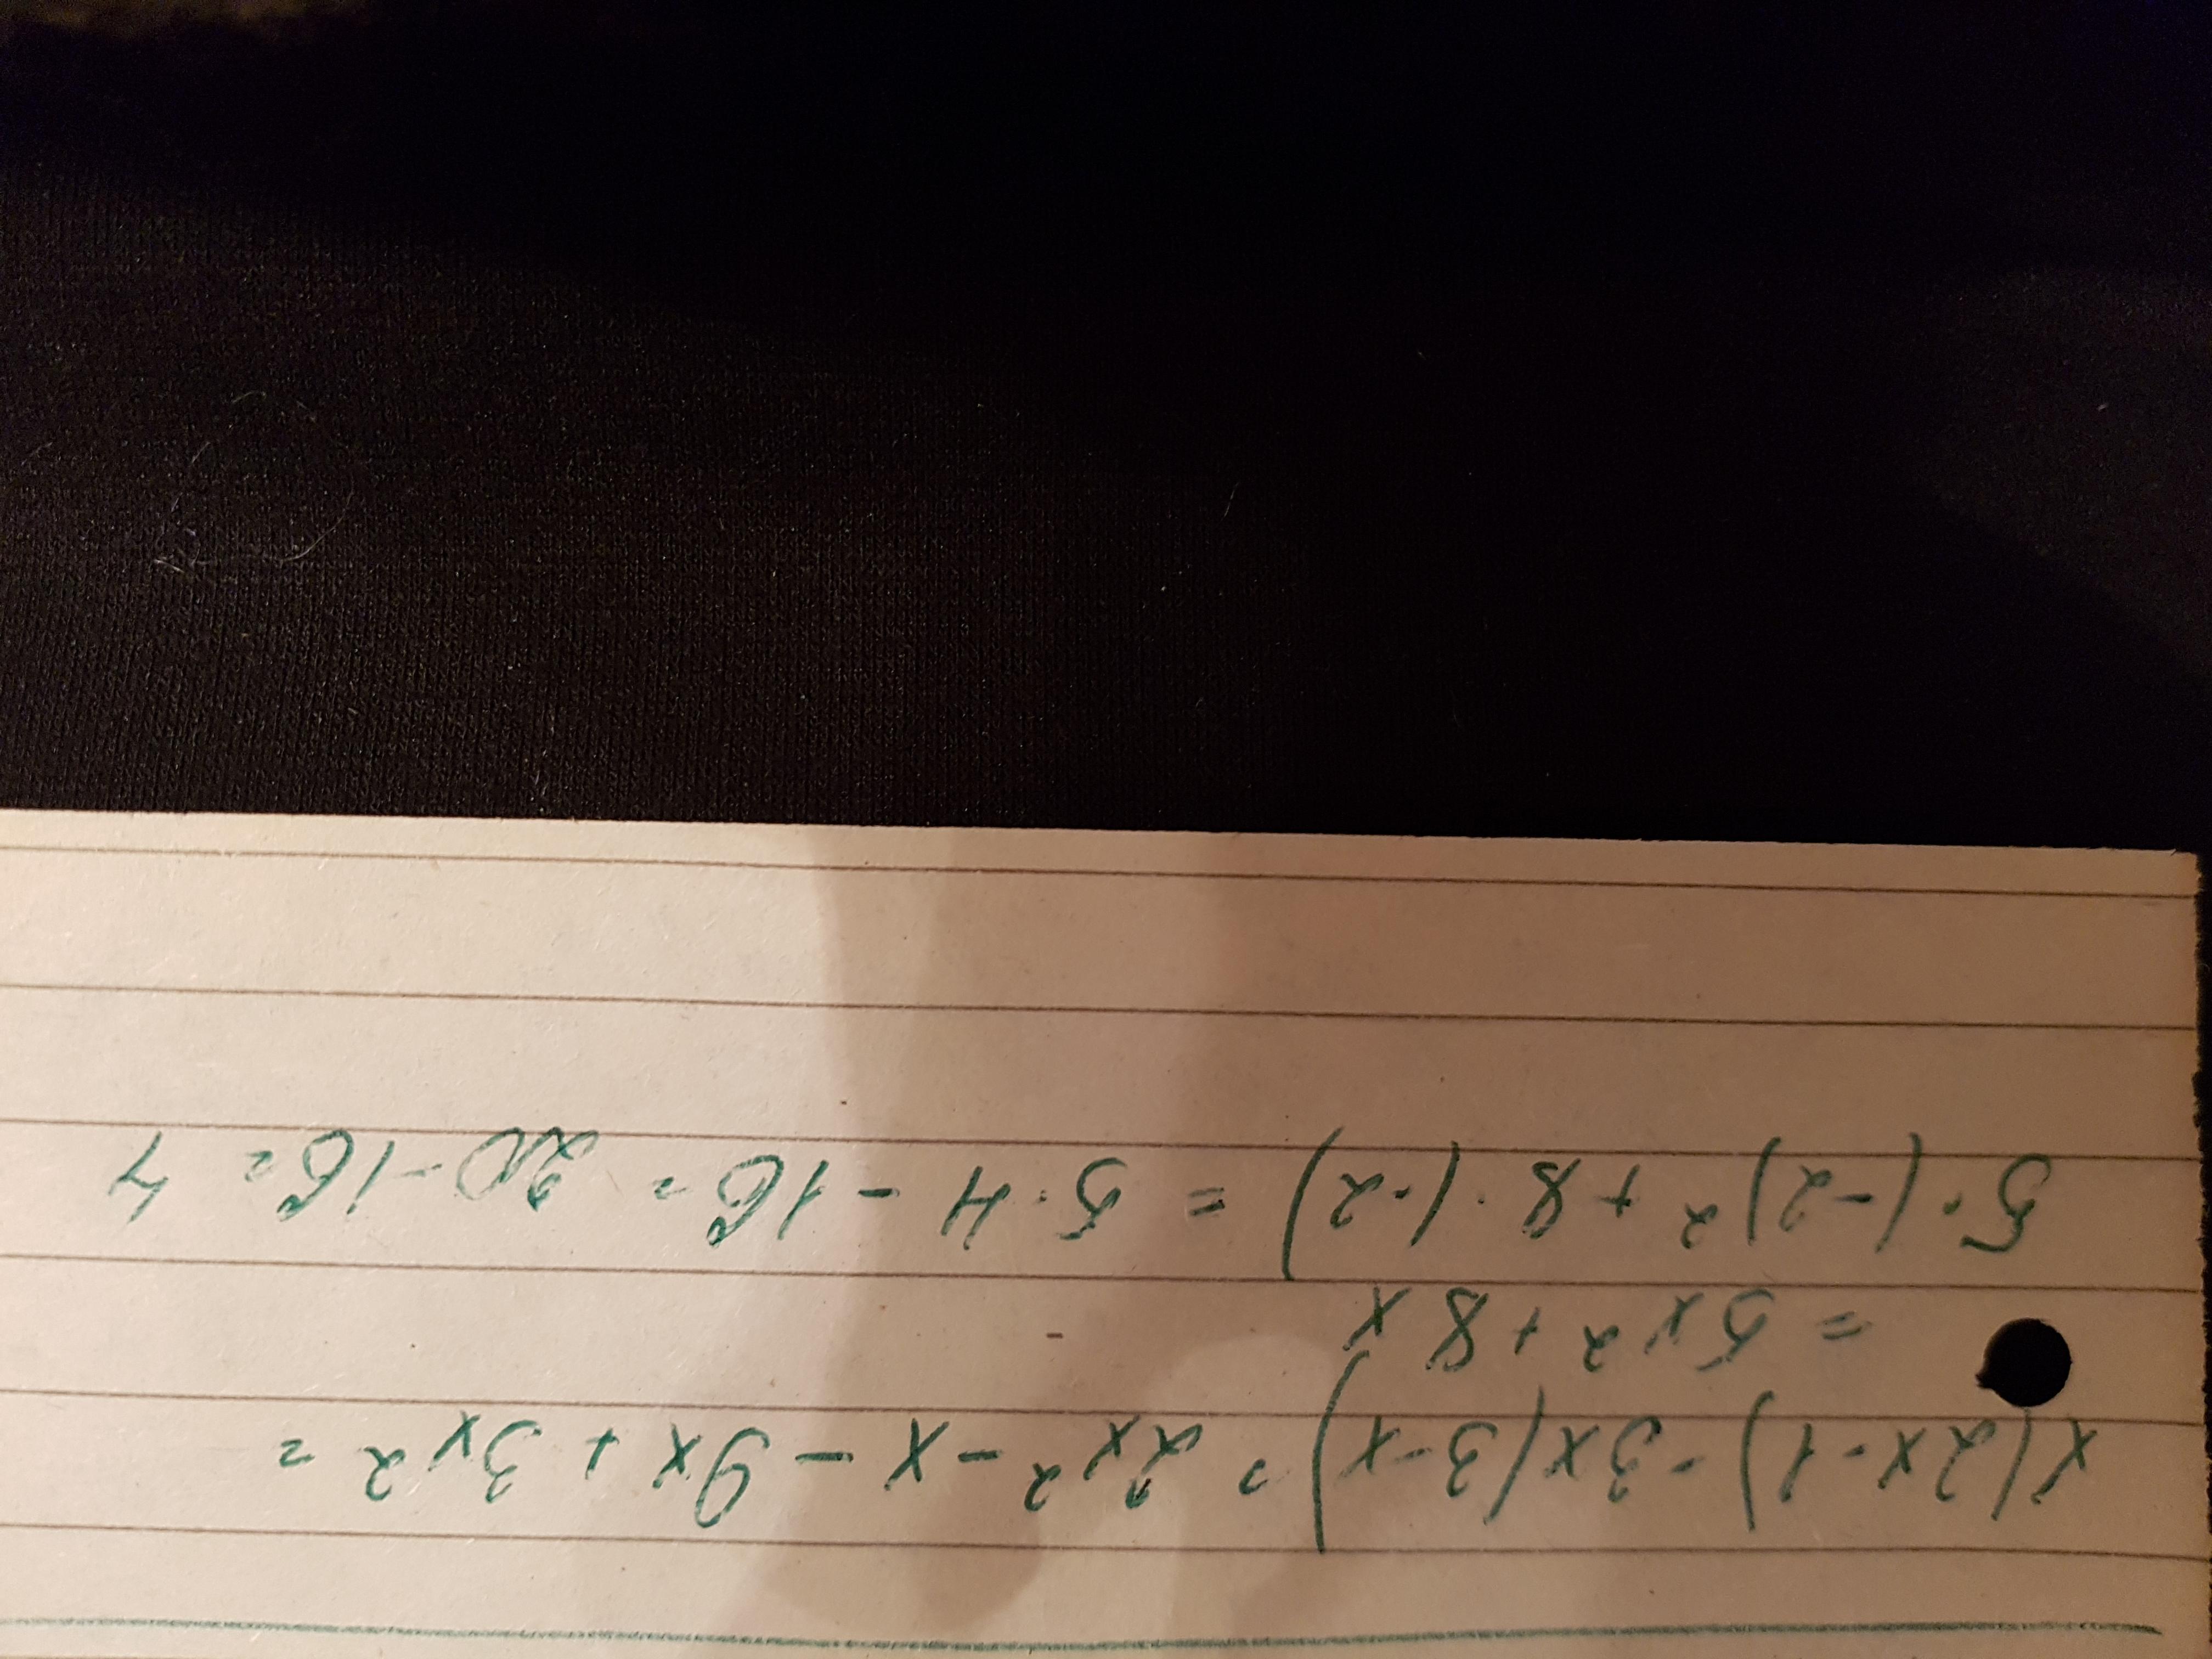 x(2x-1)-3x(3-x) = 2x² - x - 9x + 3x² =
= 5x² + 8x
5·(-2)² + 8·(-2) = 5·4 - 16 = 20 - 16 = 4